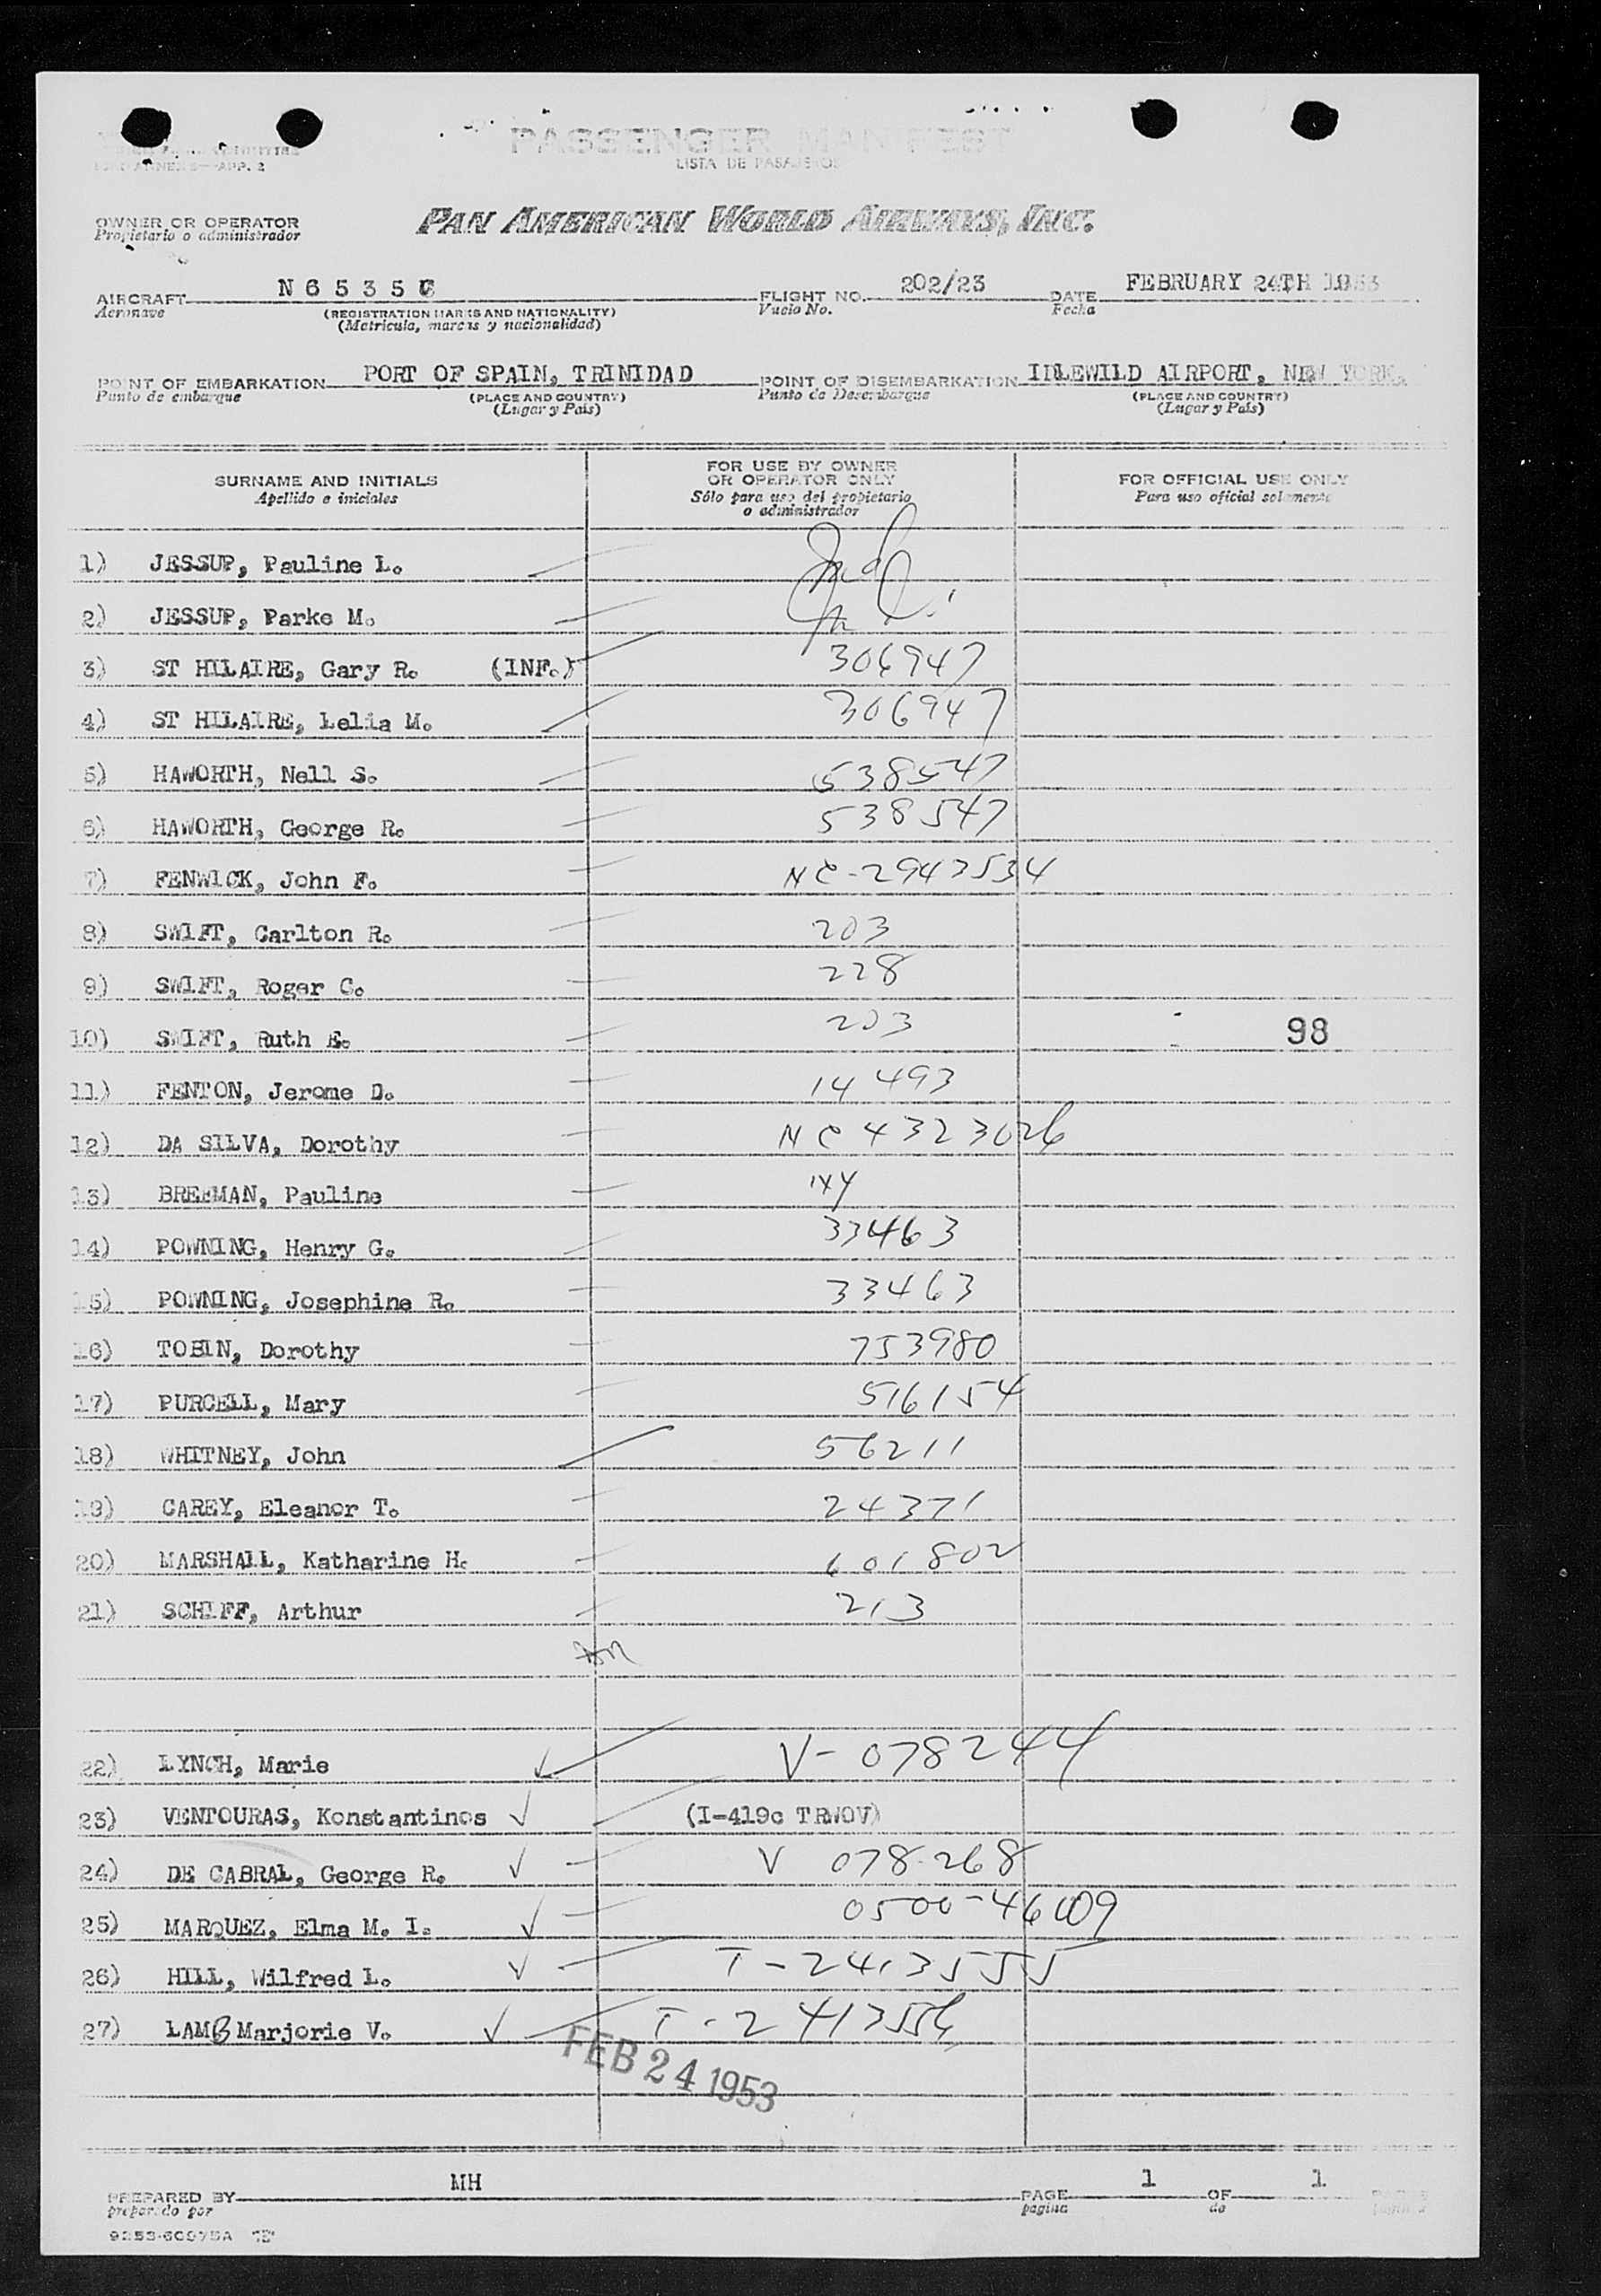 PASSENGER MANIFEST
LISTA DE PASAJEROS
APP. 2
OWNER OR OPERATOR
Propietario o administrador
PAN AMERICAN WORLD AIRWAYS, INC.
AIRCRAFT N 6 5 3 5 C FLIGHT NO. 202/23 DATE FEBRUARY 24TH 1953
Aeronave (REGISTRATION MARKS AND NATIONALITY) Vuelo No. Fecha
(Matricula, marcas y nacionalidad)
POINT OF EMBARKATION PORT OF SPAIN, TRINIDAD POINT OF DISEMBARKATION IDLEWILD AIRPORT, NEW YORK,
Punto de embarque (PLACE AND COUNTRY) Punto de Desembarque (PLACE AND COUNTRY)
(Lugar y País) (Lugar y País)
SURNAME AND INITIALS
Apellido e iniciales
FOR USE BY OWNER
OR OPERATOR ONLY
Sólo para uso del propietario
o administrador
FOR OFFICIAL USE ONLY
Para uso oficial solamente
1) JESSUP, Pauline L.
2) JESSUP, Parke M.
3) ST HILAIRE, Gary R. (INF.) 306947
4) ST HILAIRE, Lelia M. 306947
5) HAWORTH, Nell S. 538547
6) HAWORTH, George R. 538547
7) FENWICK, John F. NC-2943534
8) SWIFT, Carlton R. 203
9) SWIFT, Roger C. 228
10) SWIFT, Ruth E. 203 98
11) FENTON, Jerome D. 14493
12) DA SILVA, Dorothy NC 4323026
13) BREEMAN, Pauline
14) POWNING, Henry G. 33463
15) POWNING, Josephine R. 33463
16) TOBIN, Dorothy 753980
17) PURCELL, Mary 516154
18) WHITNEY, John 56211
19) CAREY, Eleanor T. 24371
20) MARSHALL, Katharine H. 601802
21) SCHIFF, Arthur 213
22) LYNCH, Marie V-078244
23) VENTOURAS, Konstantinos (I-419c TRWOV)
24) DE CABRAL, George R. V 078268
25) MARQUEZ, Elma M. I. 0500-46009
26) HILL, Wilfred L. T-2413555
27) LAMB Marjorie V. T-2413556
FEB 24 1953
PREPARED BY MH PAGE 1 OF 1
preparado por pagina de